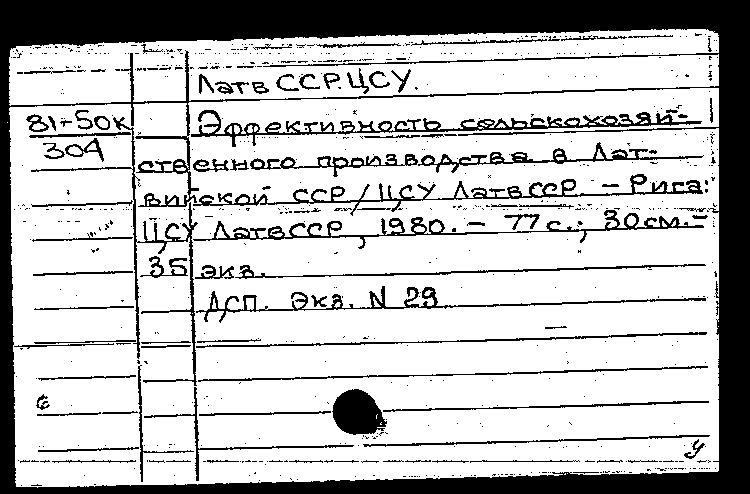 Латв ССР. ЦСУ.
81-50к
304
Эффективность сельскохозяй-
ственного производства в Лат-
вийской ССР / ЦСУ ЛатвССР. - Рига:
ЦСУ ЛатвССР, 1980. - 77 с.; 30 см. -
35 экз.
ДСП. Экз. N 29
6
У